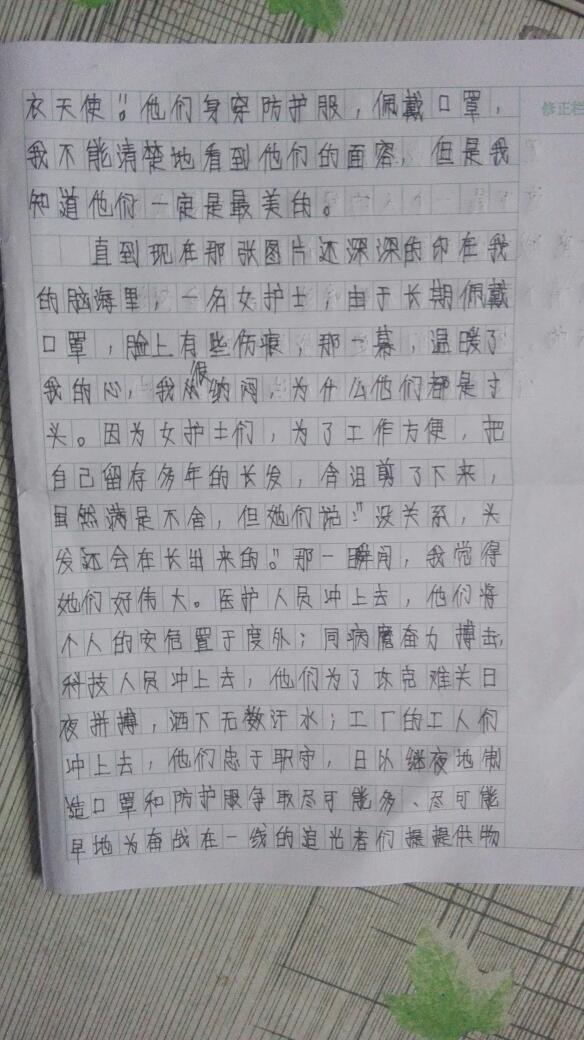 修正栏
衣天使"。他们身穿防护服，佩戴口罩，
我不能清楚地看到他们的面容，但是我
知道他们一定是最美的。
直到现在那张图片还深深的印在我
的脑海里，一名女护士，由于长期佩戴
口罩，脸上有些伤痕，那一幕，温暖了
我的心，我很纳闷，为什么他们都是寸
头。因为女护士们，为了工作方便，把
自己留存多年的长发，含泪剪了下来，
虽然满是不舍，但她们说："没关系，头
发还会在长出来的。"那一瞬间，我觉得
她们好伟大。医护人员冲上去，他们将
个人的安危置于度外；同病魔奋力搏击，
科技人员冲上去，他们为了攻克难关日
夜拼搏，洒下无数汗水；工厂的工人们
冲上去，他们忠于职守，日以继夜地制
造口罩和防护服争取尽可能多、尽可能
早地为奋战在一线的追光者们提提供物